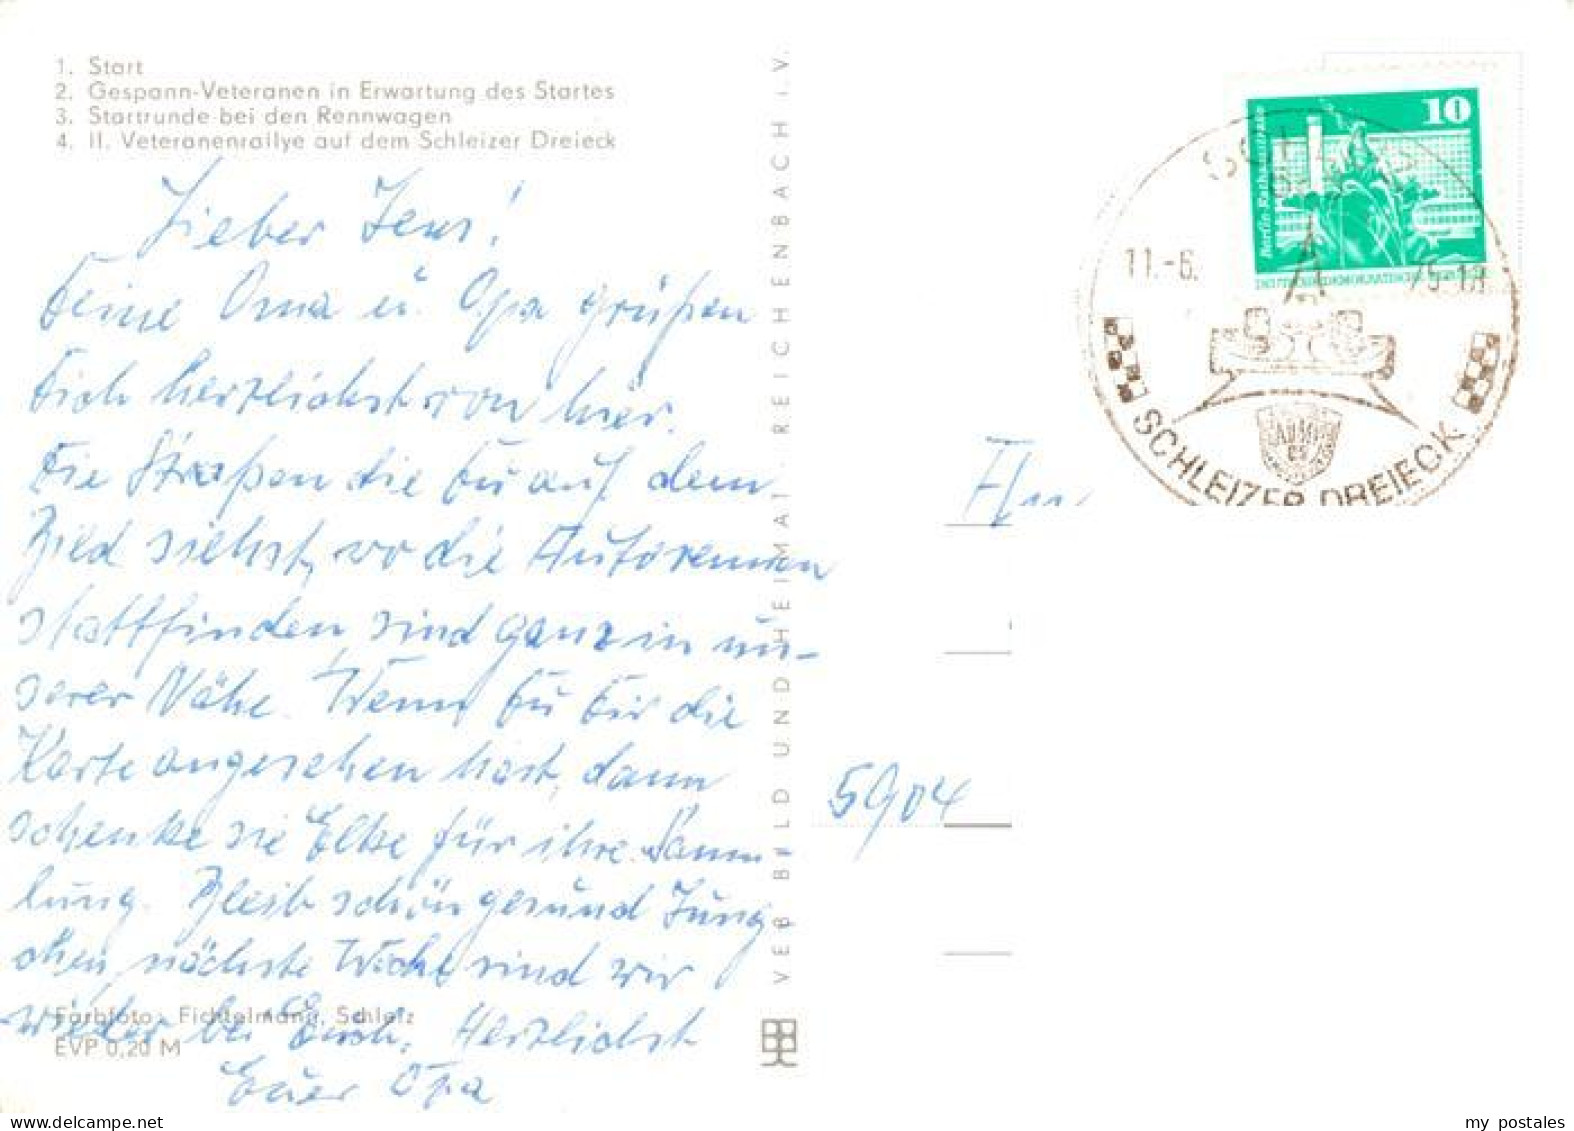 1. Start
2. Gespann-Veteranen in Erwartung des Startes
3. Startrunde bei den Rennwagen
4. II. Veteranenrallye auf dem Schleizer Dreieck
Lieber Jens!
Deine Oma u. Opa grüßen
Dich herzlichst von hier.
Die Straßen die Du auf dem
Bild siehst, wo die Autorennen
stattfinden sind ganz in un-
serer Nähe. Wenn Du Dir die
Karte angesehen hast, dann
schenke sie Elke für ihre Samm-
lung. Bleib schön gesund Jung
chen, nächste Woche sind wir
wieder bei Euch. Herzlichst
Euer Opa
Farbfoto: Fichtelmann, Schleiz
EVP 0,20 M
VEB BILD UND HEIMAT REICHENBACH i. V.
10
Berlin-Rathausstrasse
11.-6. 75-18
SCHLEIZER DREIECK
5904
my postales